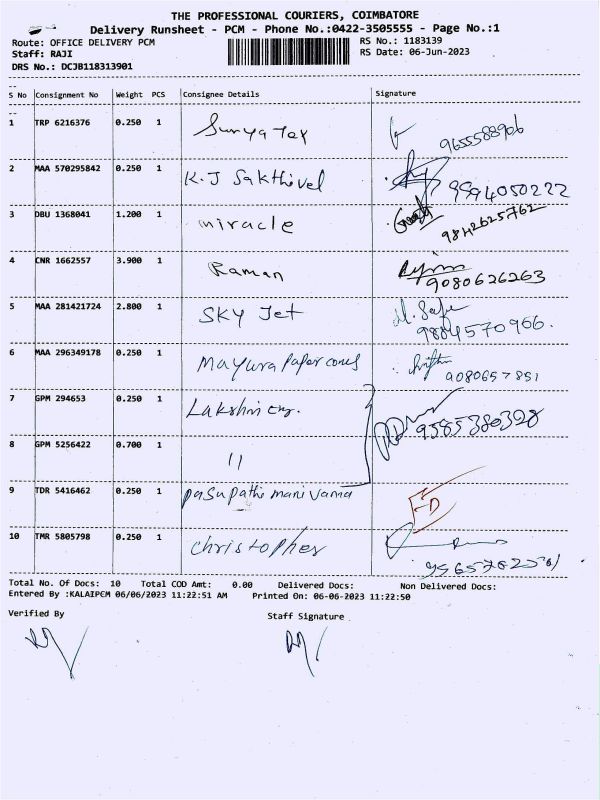 THE PROFESSIONAL COURIERS, COIMBATORE
Delivery Runsheet - PCM - Phone No.:0422-3505555 - Page No.:1
Route: OFFICE DELIVERY PCM RS No.: 1183139
Staff: RAJI RS Date: 06-Jun-2023
DRS No.: DCJB118313901
S No Consignment No Weight PCS Consignee Details Signature
1 TRP 6216376 0.250 1 Surya Tex 9655588906
2 MAA 570295842 0.250 1 K.J Sakthivel 9994050222
3 DBU 1368041 1.200 1 miracle 9842625762
4 CNR 1662557 3.900 1 Raman 9080626263
5 MAA 281421724 2.800 1 SKY Jet 9884570966.
6 MAA 296349178 0.250 1 Mayura Paper cones 9080657851
7 GPM 294653 0.250 1 Lakshmi Eng. 9585380328
8 GPM 5256422 0.700 1 11
9 TDR 5416462 0.250 1 pasupathi mani vanna
10 TMR 5805798 0.250 1 Christopher
Total No. Of Docs: 10 Total COD Amt: 0.00 Delivered Docs: Non Delivered Docs:
Entered By :KALAIPCM 06/06/2023 11:22:51 AM Printed On: 06-06-2023 11:22:50
Verified By Staff Signature